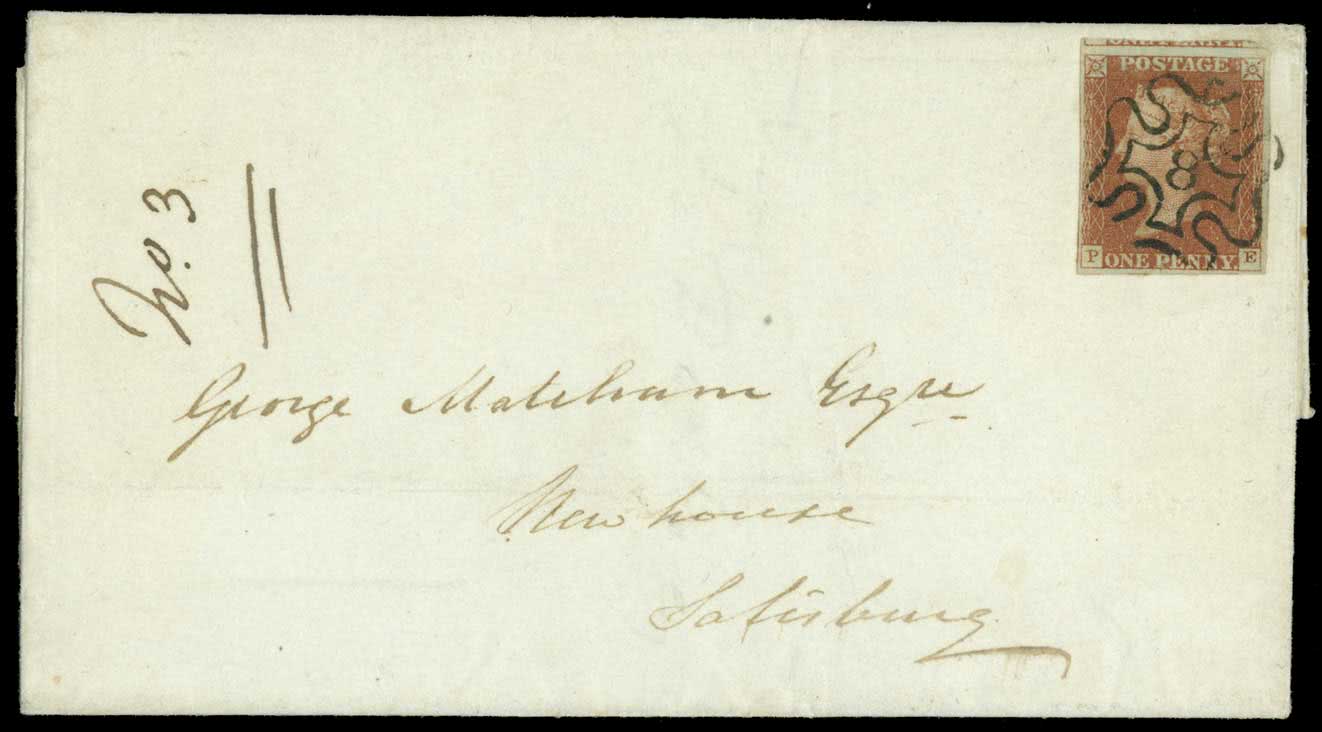 No. 3
ONE PENNY.
POSTAGE
8
P ONE PENNY. E
George Matcham Esqre
New house
Salisbury